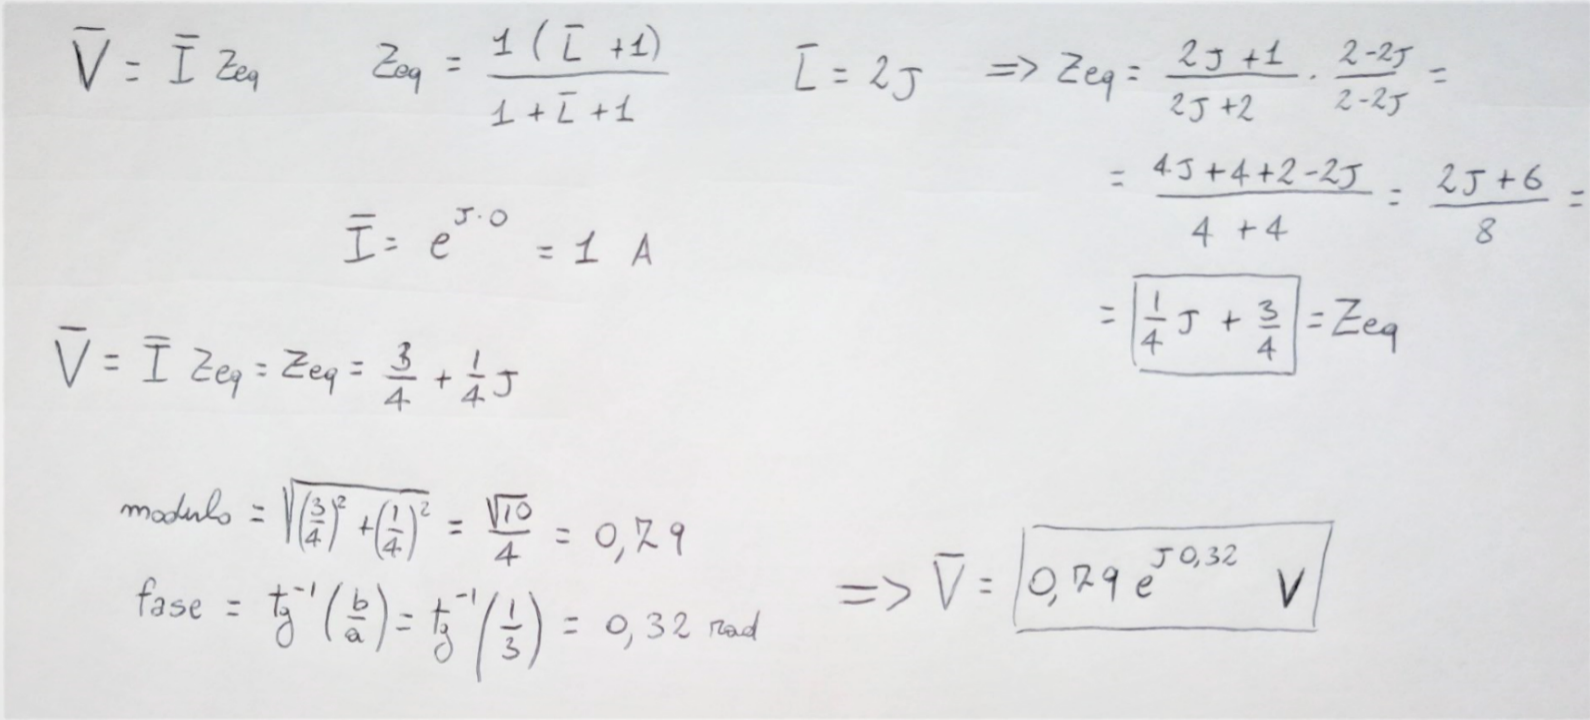 V̄ = Ī Zeq    Zeq = 1 ( L̄ +1) / 1 + L̄ + 1    L̄ = 2J    => Zeq = 2J +1 / 2J +2 · 2-2J / 2-2J =
= 4J + 4 + 2 - 2J / 4 + 4 = 2J + 6 / 8 =
Ī = e^J·0 = 1 A
= 1/4 J + 3/4 = Zeq
V̄ = Ī Zeq = Zeq = 3/4 + 1/4 J
modulo = √(3/4)² + (1/4)² = √10 / 4 = 0,79
fase = tg⁻¹ (b/a) = tg⁻¹ (1/3) = 0,32 rad
=> V̄ = 0,79 e^J0,32 V